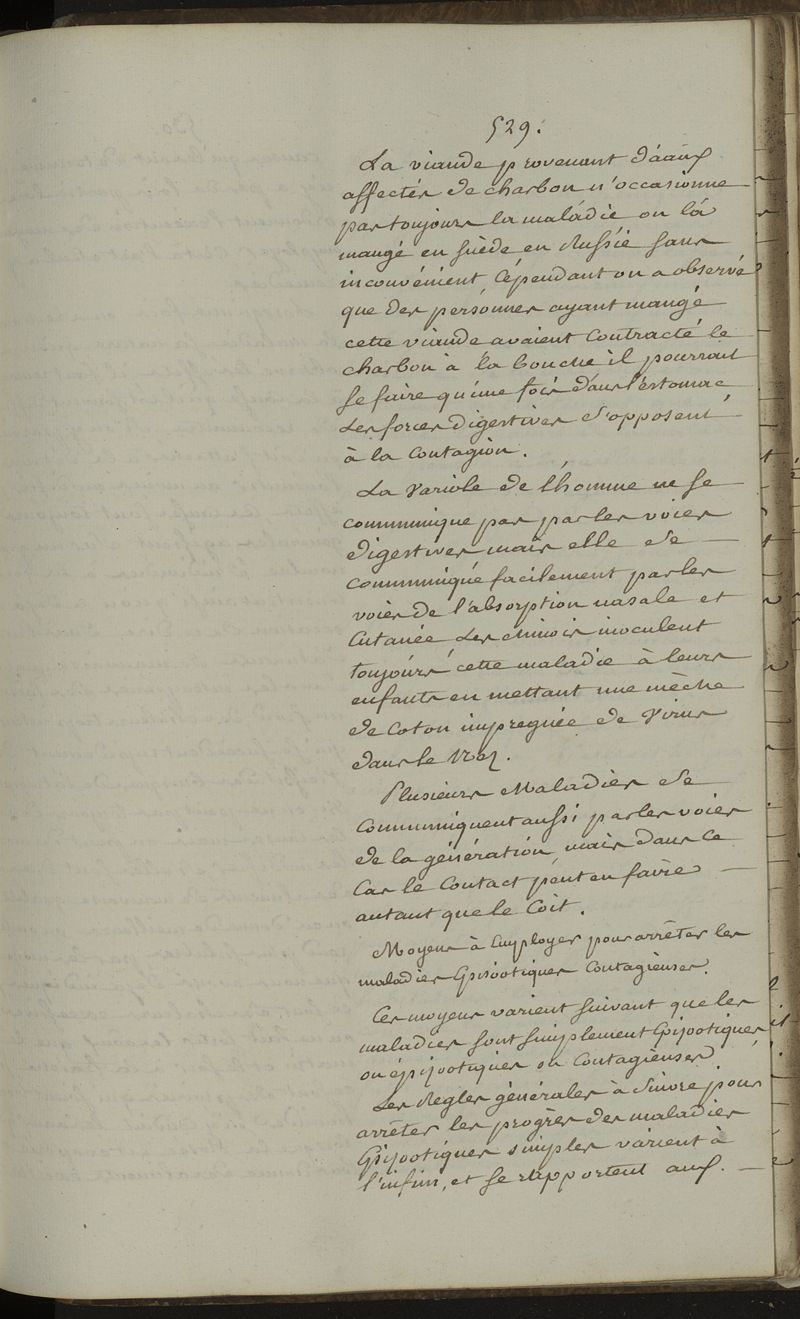 529.
La viande provenant d'áaux
affectés de charbon n'occasionne
pas toujours la maládie on lá
mangé en suède en Russié sans
inconvénient, Cépendant on a observé
que des persónnes ayant mangé
cette viande avaient Contracté le
charbon à la bouche il pourrait
se faire qu'une fois dans l'estomac
Les forces digestives s'opposent
à la Contagion.
La Variole de l'homme ne se
communique pas par les voies
digestives mais elle se
communiqué facilement par les
voies de l'absorption nasale et
Cutanée Les chinois inoculent
toujours cette maladie à leurs
enfants en mettant une mèche
de Coton impregnée de Virus
dans le Nez.
Plusieurs Maladies se
Communiquent aussi par les voies
de la génération, mais dans ce
Cas le Contact peut en faire
autant que le Coït.
Moyens à Employer pour arrêter les
maladies Epizootiques Contagieuses.
Ces moyens varient suivant que les
maladies sont simplement Epizootiques
ou épizootiques ou Contagieuses.
Les Regles générales à Suivre pour
arrêter les progrès des maladies
Epizootiques simples varient à
l'infini, et se rapportent aux.